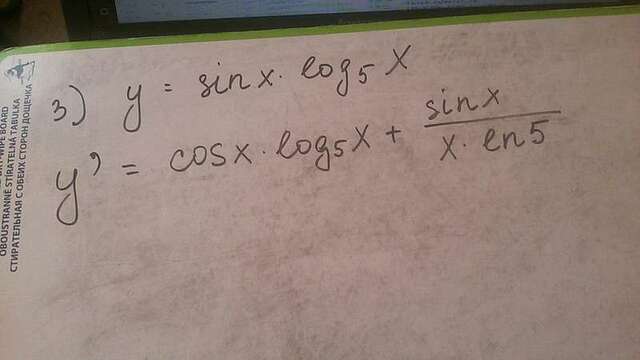 3) y = sin x · log₅ X
y' = cos x · log₅ x + sin x / x · ln 5
WIPE BOARD
OBOUSTRANNÉ STÍRATELNÁ TABULKA
СТИРАТЕЛЬНАЯ С ОБЕИХ СТОРОН ДОЩЕЧКА